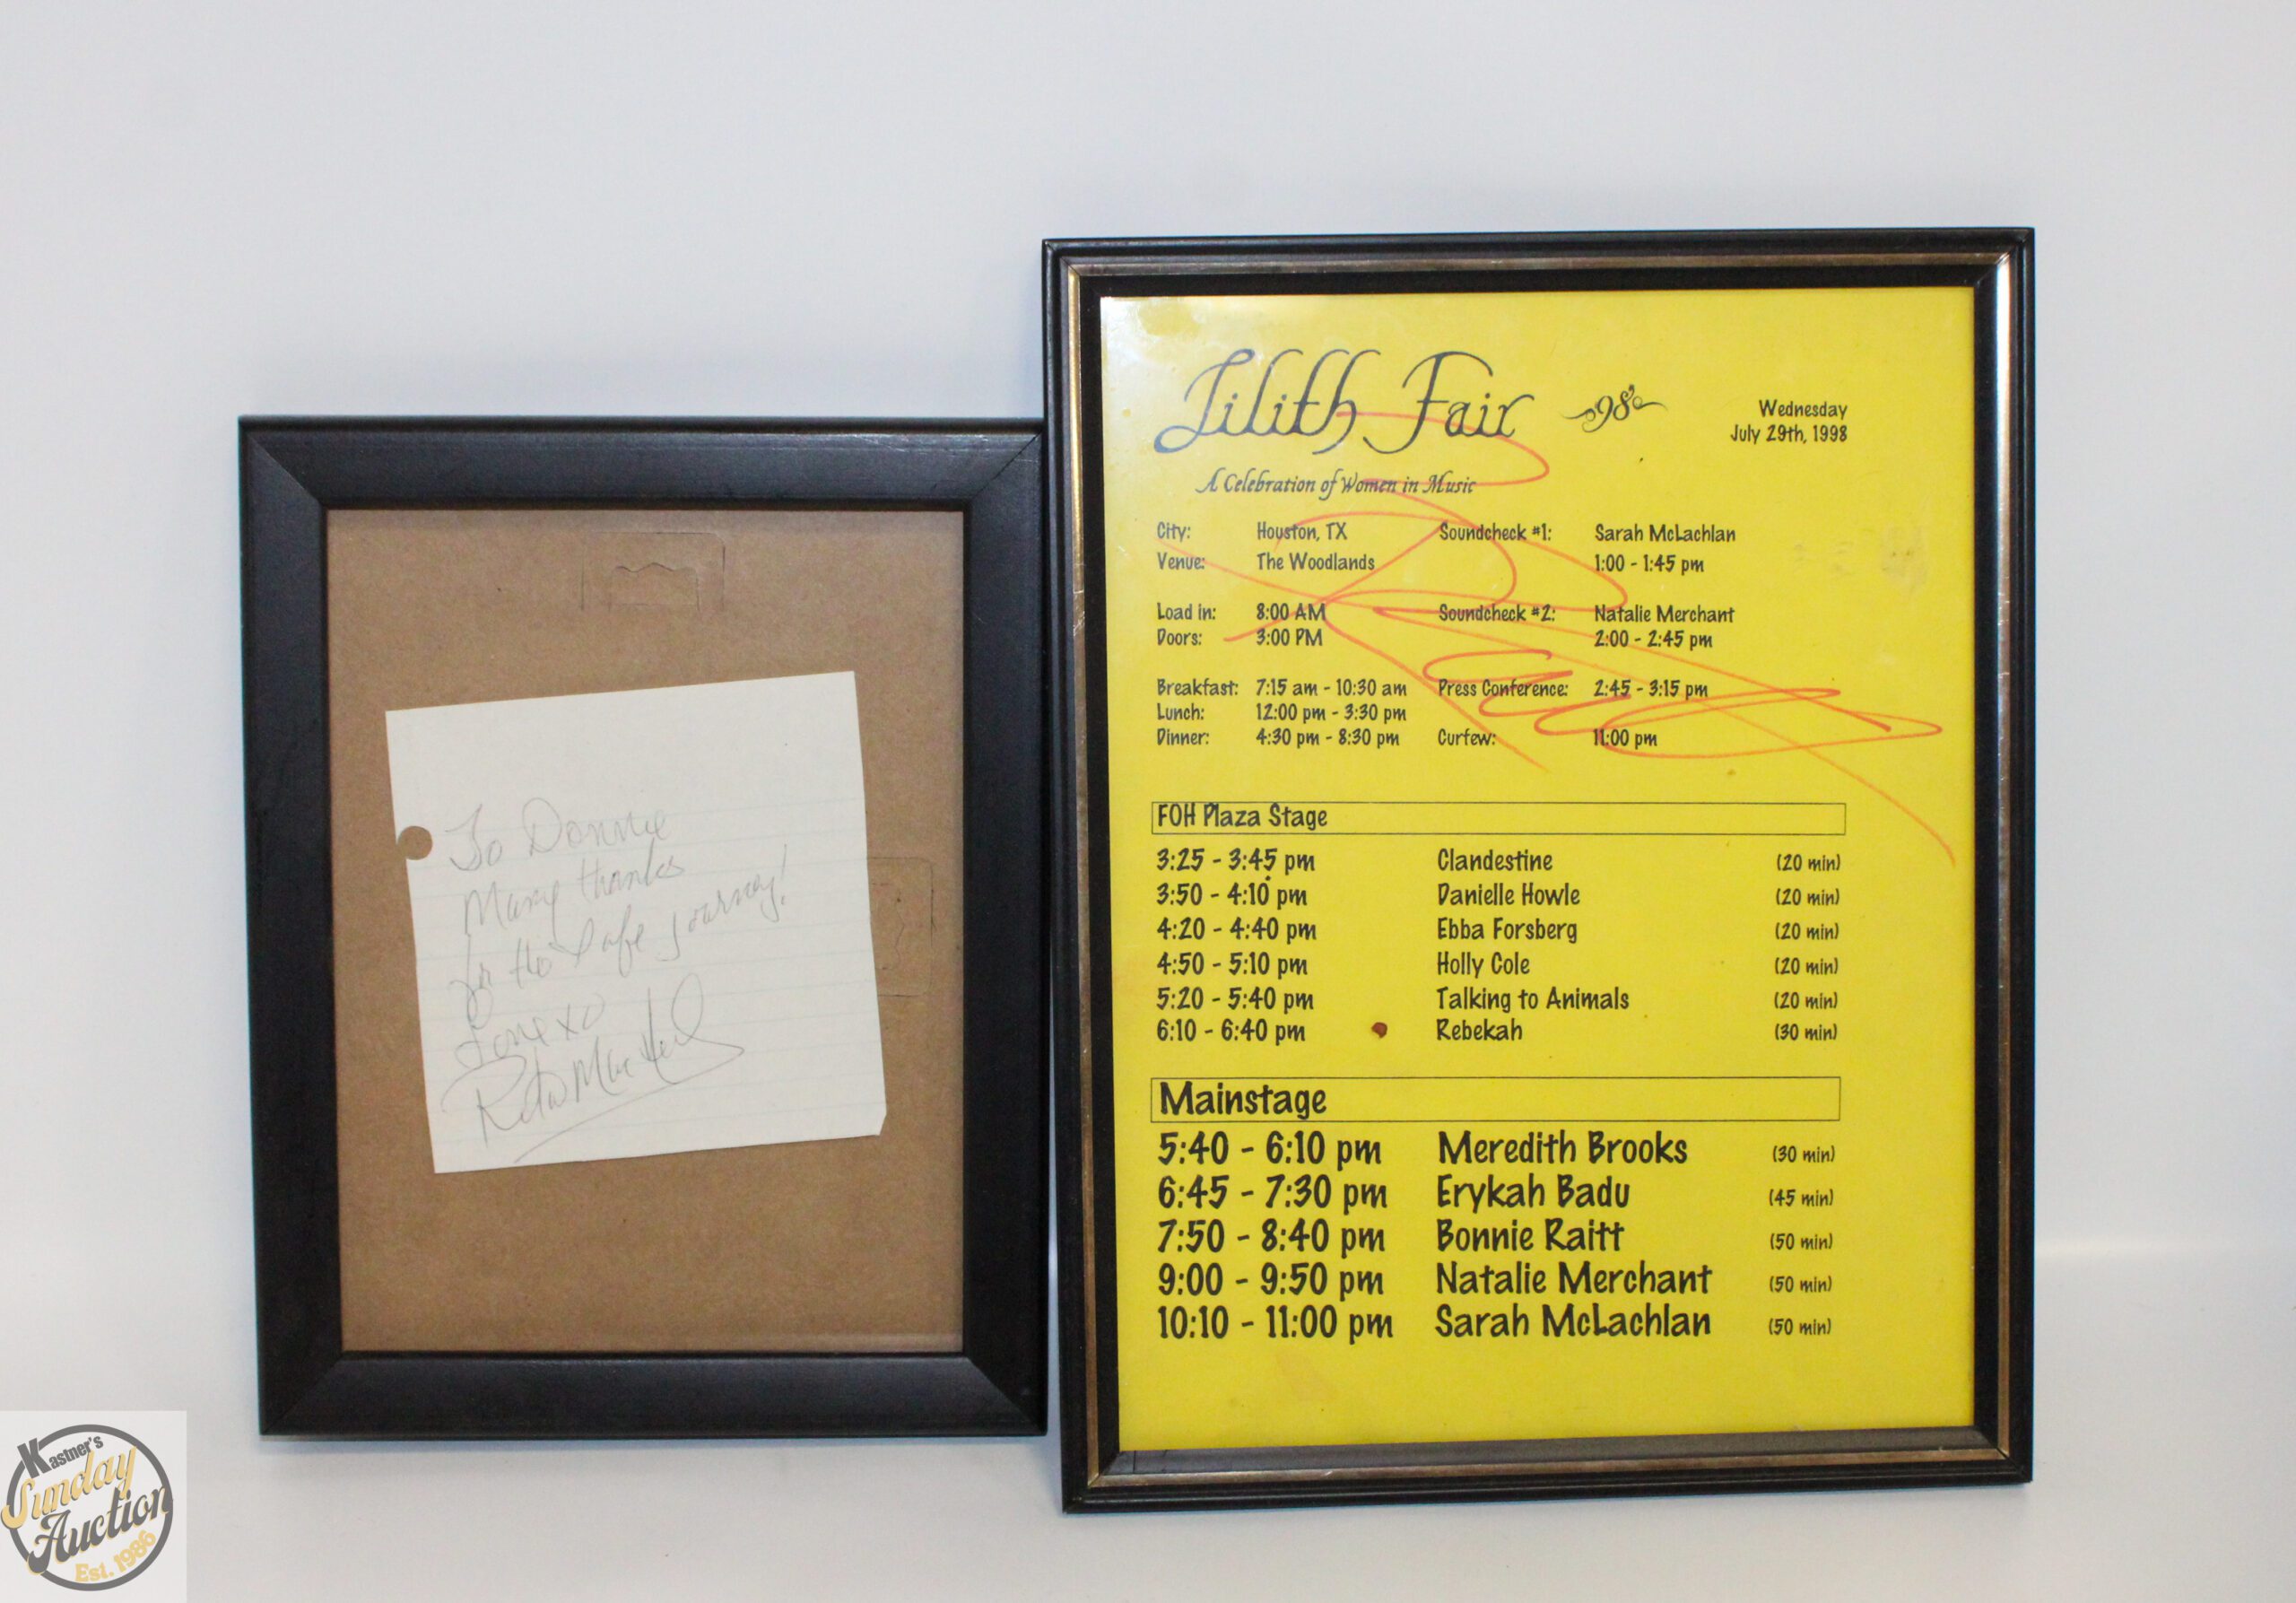 To Donnie
Many thanks
for the safe journey!
Love xo
Rita MacNeil
Lilith Fair 98
Wednesday
July 29th, 1998
A Celebration of Women in Music
City: Houston, TX Soundcheck #1: Sarah McLachlan
Venue: The Woodlands 1:00 - 1:45 pm
Load in: 8:00 AM Soundcheck #2: Natalie Merchant
Doors: 3:00 PM 2:00 - 2:45 pm
Breakfast: 7:15 am - 10:30 am Press Conference: 2:45 - 3:15 pm
Lunch: 12:00 pm - 3:30 pm
Dinner: 4:30 pm - 8:30 pm Curfew: 11:00 pm
FOH Plaza Stage
3:25 - 3:45 pm Clandestine (20 min)
3:50 - 4:10 pm Danielle Howle (20 min)
4:20 - 4:40 pm Ebba Forsberg (20 min)
4:50 - 5:10 pm Holly Cole (20 min)
5:20 - 5:40 pm Talking to Animals (20 min)
6:10 - 6:40 pm Rebekah (30 min)
Mainstage
5:40 - 6:10 pm Meredith Brooks (30 min)
6:45 - 7:30 pm Erykah Badu (45 min)
7:50 - 8:40 pm Bonnie Raitt (50 min)
9:00 - 9:50 pm Natalie Merchant (50 min)
10:10 - 11:00 pm Sarah McLachlan (50 min)
Kastner's
Sunday
Auction
Est. 1986